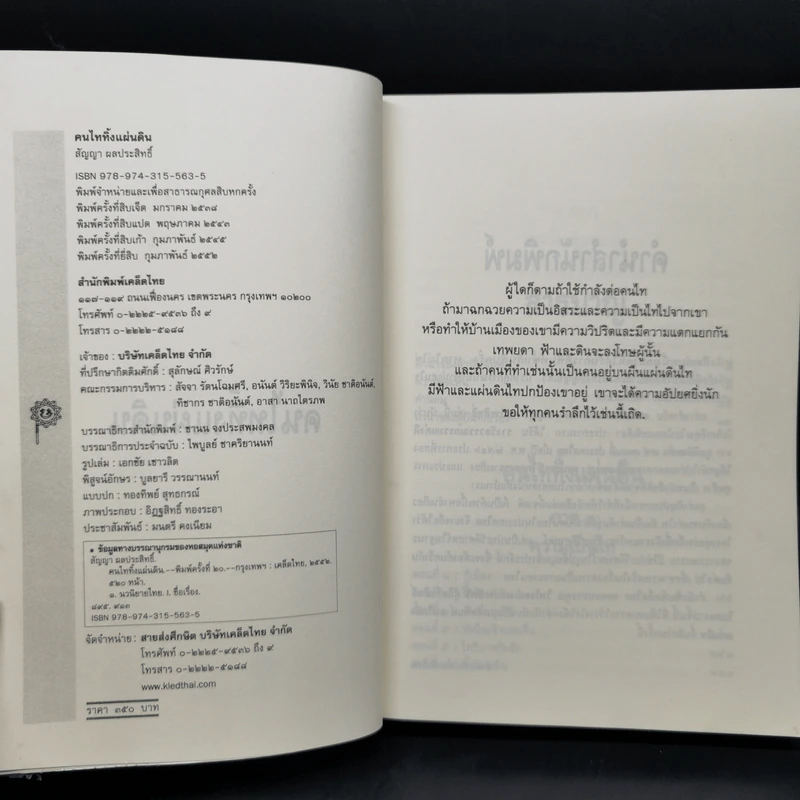 คนไททิ้งแผ่นดิน
สัญญา ผลประสิทธิ์
ISBN 978-974-315-563-5
พิมพ์จำหน่ายและเพื่อสาธารณกุศลสิบหกครั้ง
พิมพ์ครั้งที่สิบเจ็ด มกราคม ๒๕๓๘
พิมพ์ครั้งที่สิบแปด พฤษภาคม ๒๕๔๓
พิมพ์ครั้งที่สิบเก้า กุมภาพันธ์ ๒๕๔๕
พิมพ์ครั้งที่ยี่สิบ กุมภาพันธ์ ๒๕๕๒
สำนักพิมพ์เคล็ดไทย
๑๑๗-๑๑๙ ถนนเฟื่องนคร เขตพระนคร กรุงเทพฯ ๑๐๒๐๐
โทรศัพท์ ๐-๒๒๒๕-๙๕๓๖ ถึง ๙
โทรสาร ๐-๒๒๒๒-๕๑๘๘
เจ้าของ : บริษัทเคล็ดไทย จำกัด
ที่ปรึกษากิตติมศักดิ์ : สุลักษณ์ ศิวรักษ์
คณะกรรมการบริหาร : สัจจา รัตนโฉมศรี, อนันต์ วิริยะพินิจ, วินัย ชาติอนันต์,
ทิชากร ชาติอนันต์, อาสา นาถไตรภพ
บรรณาธิการสำนักพิมพ์ : ชานน จงประสพมงคล
บรรณาธิการประจำฉบับ : ไพบูลย์ ชาคริยานนท์
รูปเล่ม : เอกชัย เชาวลิต
พิสูจน์อักษร : บูลยารี วรรณานนท์
แบบปก : ทองทิพย์ สุทธกรณ์
ภาพประกอบ : อิฏฐสิทธิ์ ทองระอา
ประชาสัมพันธ์ : มนตรี คงเนียม
• ข้อมูลทางบรรณานุกรมของหอสมุดแห่งชาติ
สัญญา ผลประสิทธิ์.
คนไททิ้งแผ่นดิน.--พิมพ์ครั้งที่ ๒๐.--กรุงเทพฯ : เคล็ดไทย, ๒๕๕๒.
๕๒๐ หน้า.
๑. นวนิยายไทย. I. ชื่อเรื่อง.
๘๙๕. ๙๑๓
ISBN 978-974-315-563-5
จัดจำหน่าย : สายส่งศึกษิต บริษัทเคล็ดไทย จำกัด
โทรศัพท์ ๐-๒๒๒๕-๙๕๓๖ ถึง ๙
โทรสาร ๐-๒๒๒๒-๕๑๘๘
www.kledthai.com
ราคา ๓๕๐ บาท
ผู้ใดก็ตามถ้าใช้กำลังต่อคนไท
ถ้ามาฉกฉวยความเป็นอิสระและความเป็นไทไปจากเขา
หรือทำให้บ้านเมืองของเขามีความวิปริตและมีความแตกแยกกัน
เทพยดา ฟ้าและดินจะลงโทษผู้นั้น
และถ้าคนที่ทำเช่นนั้นเป็นคนอยู่บนผืนแผ่นดินไท
มีฟ้าและแผ่นดินไทปกป้องเขาอยู่ เขาจะได้ความอัปยศยิ่งนัก
ขอให้ทุกคนรำลึกไว้เช่นนี้เถิด.